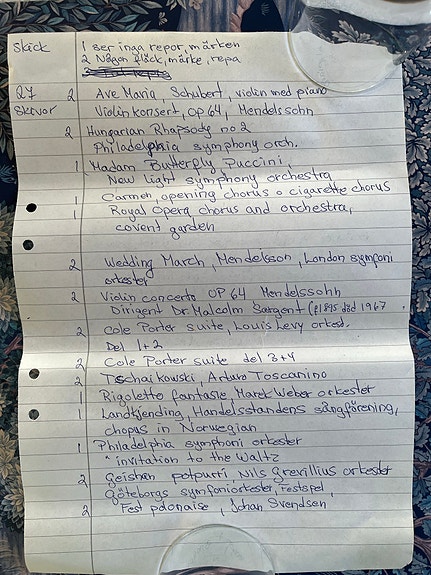 Skick 1 ser inga repor, märken
2 Någon fläck, märke, repa
27 2 Ave Maria, Schubert, violin med piano
Skivor Violin konsert, OP 64, Mendelssohn
2 Hungarian Rhapsody no 2
Philadelphia symphony orch.
1 Madam Butterply Puccini,
New light symphony orchestra
1 Carmen, opening chorus o cigarette chorus
1 Royal Opera chorus and orchestra,
covent garden
2 Wedding March, Mendelsson, London symfoni
orkester
2 Violin concerto OP 64 Mendelssohn
Dirigent Dr Malcolm Sargent (f 1895 död 1967
2 Cole Porter suite, Louis Levy orkest.
Del 1+2
2 Cole Porter suite del 3+4
2 Tschaikowski, Arturo Toscanino
1 Rigoletto fantasie, Marek Weber orkester
1 Landkjending, Handelsstandens sångförening,
chopus in Norwegian
1 Philadelphia symphoni orkester
" invitation to the Waltz
2 Geishan potpurri Nils Grevillius orkester
Göteborgs symfoniorkester, Festspel,
2 Fest polonaise, Johan Svendsen